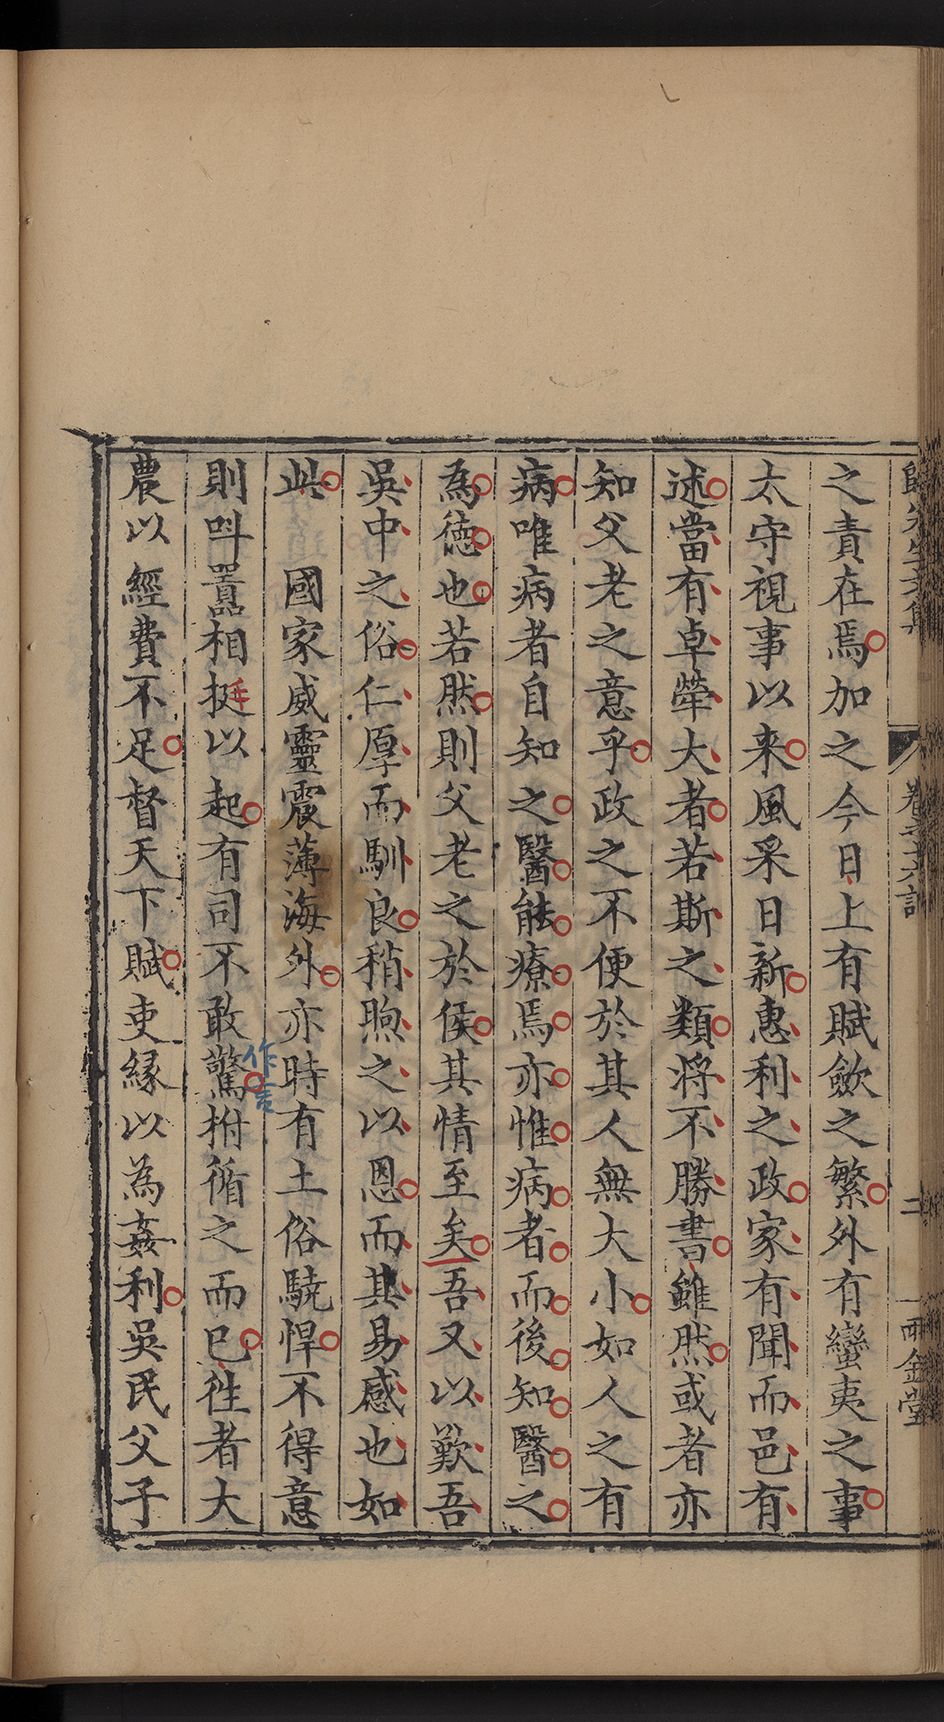 歸先生文集
卷之六記
二
雨金堂
之責在焉加之今日上有賦斂之繁外有蠻夷之事
太守視事以来風采日新惠利之政家有聞而邑有
述當有卓犖大者若斯之類將不勝書雖然或者亦
知父老之意乎政之不便於其人無大小如人之有
病唯病者自知之醫能療焉亦惟病者而後知醫之
為徳也若然則父老之於侯其情至矣吾又以歎吾
吳中之俗仁厚而馴良稍喣之以恩而其易感也如
此　國家威靈震薄海外亦時有土俗驍悍不得意
則呌囂相挺以起有司不敢驚拊循之而已徃者大
農以經費不足督天下賦吏縁以為姦利吳民父子
作